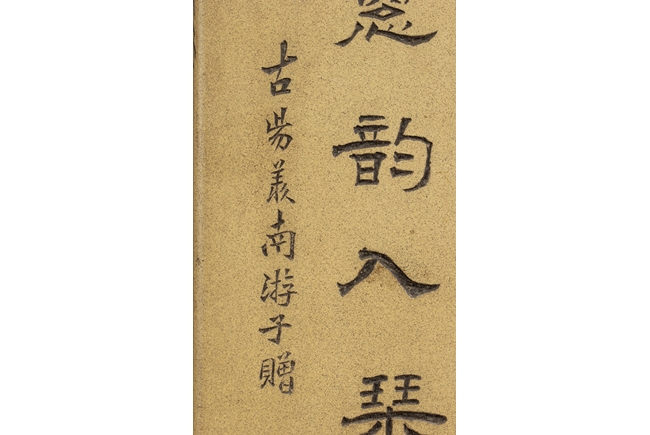 韵入琹
古昜羡南游子贈